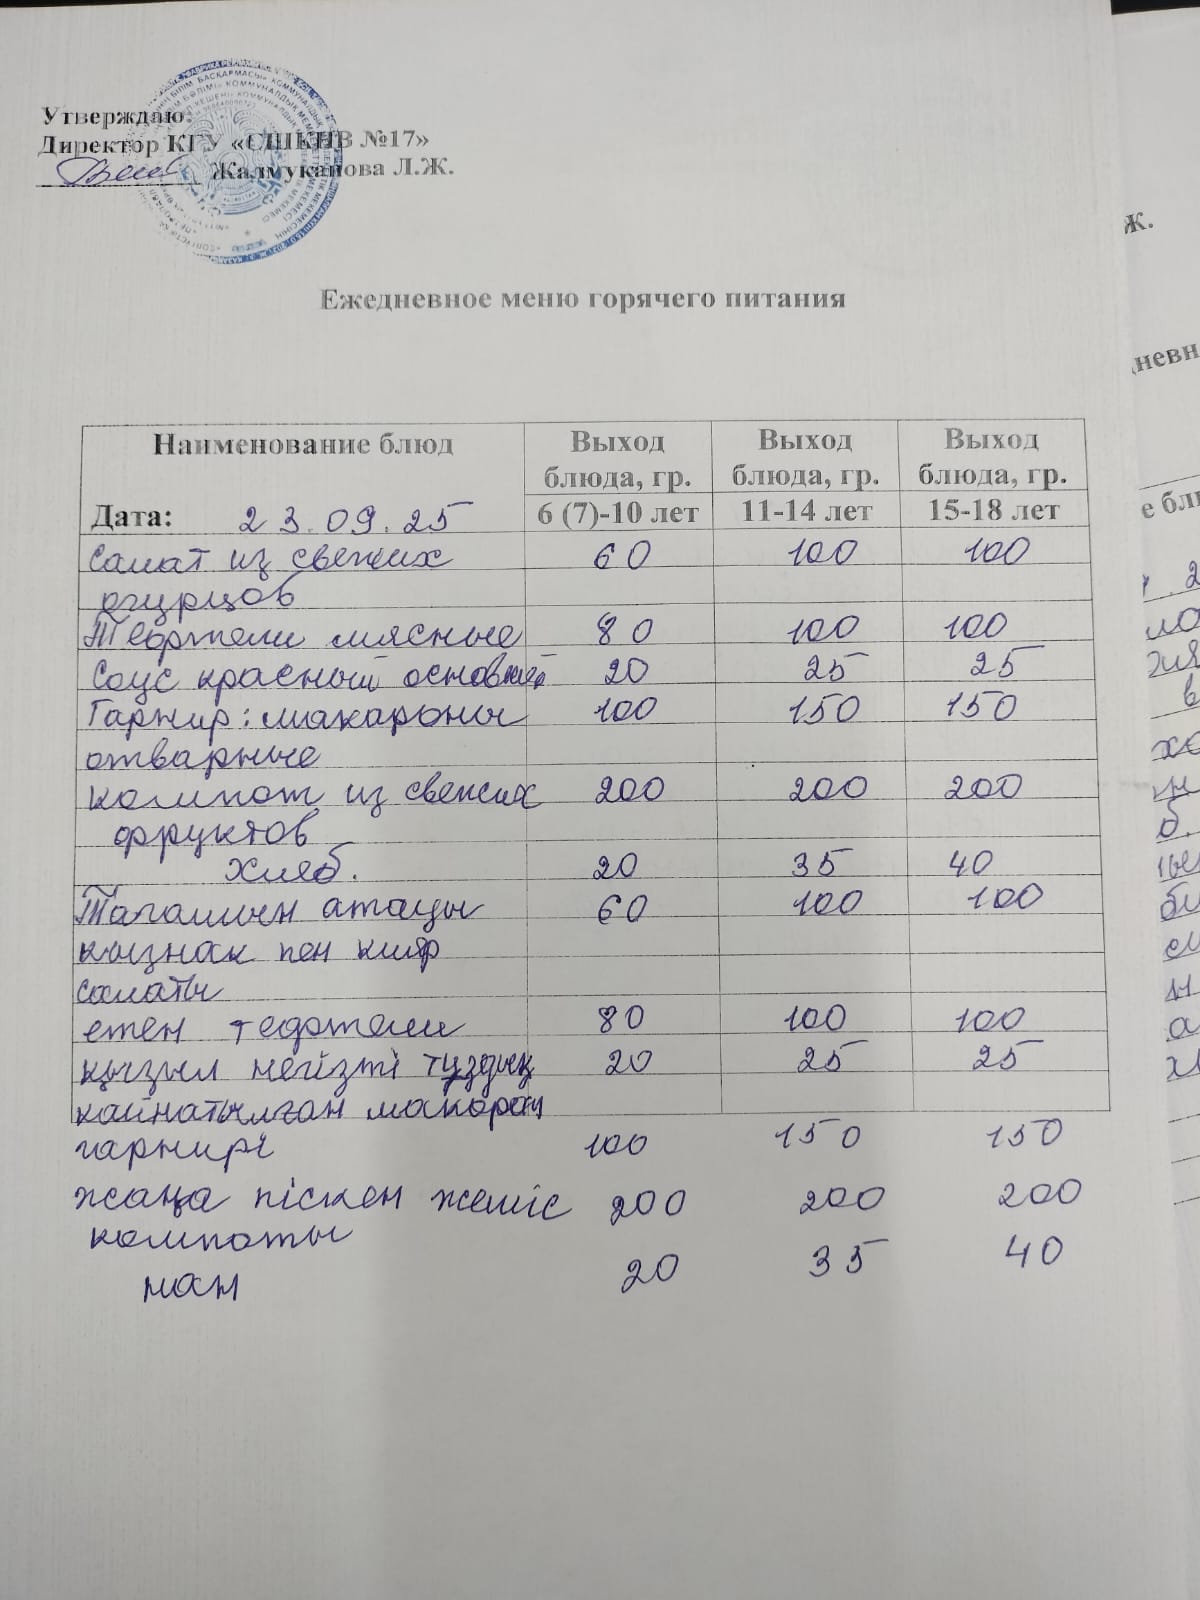 Утверждаю:
Директор КГУ «СШКНВ №17»
Жалмуканова Л.Ж.
Ежедневное меню горячего питания
Наименование блюд Выход блюда, гр. Выход блюда, гр. Выход блюда, гр.
Дата: 23.09.25 6 (7)-10 лет 11-14 лет 15-18 лет
Салат из свежих 60 100 100
огурцов
Тефтели мясные 80 100 100
Соус красный основной 20 25 25
Гарнир: макароны 100 150 150
отварные
компот из свежих 200 200 200
фруктов
Хлеб. 20 35 40
Тағамның атауы 60 100 100
қызнақ пен кияр
салаты
етен тефтели 80 100 100
қызыл негізгі тұздық 20 25 25
қайнатылған макарон
гарнирі 100 150 150
жаңа піскен жеміс 200 200 200
компоты
нан 20 35 40
Ж.